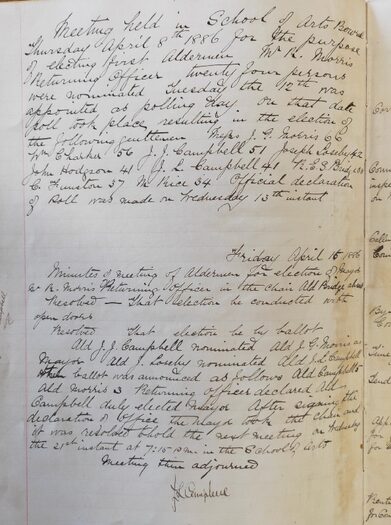 Meeting held in School of Arts Bowral
Thursday April 8th 1886 for the purpose
of electing first Aldermen Mr R. Morris
Returning Officer twenty four persons
were nominated Tuesday the 12th was
appointed as polling day. On that date
poll took place resulting in the election of
the following gentlemen Messrs J. G. Morris 62
Wm Charker 56 J. J. Campbell 51 Joseph Loseby 42
John Hodgson 41 J. L. Campbell 41 R. E. S. Bridge
C. Funston 37 M. Rice 34 Official declaration
of Poll was made on Wednesday 13th instant
Friday April 15 1886
Minutes of meeting of Aldermen for election of Mayor
Mr R. Morris Returning Officer in the Chair Ald Bridge
Resolved — That Election be conducted with
open doors
Resolved That election be by ballot
Ald J. J. Campbell nominated Ald J. G. Morris as
Mayor Ald J. Loseby nominated Ald J. L. Campbell
ballot was announced as follows Ald Campbell 5
Ald Morris 3 Returning officer declared Ald
Campbell duly elected Mayor After signing the
declaration of office the Mayor took the chair and
it was resolved to hold the next meeting on
the 21st instant at 7:15 p m in the School of Arts
Meeting then adjourned
J L Campbell